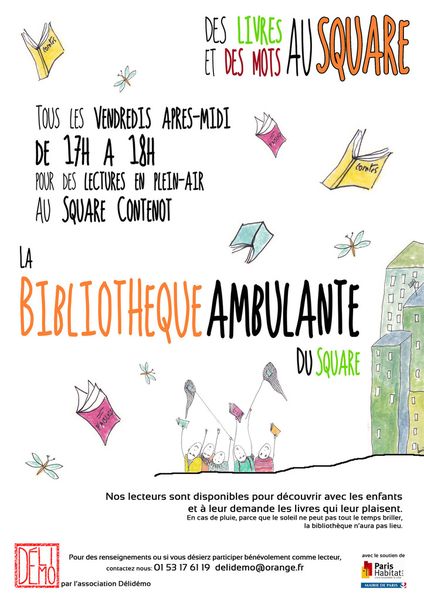 DES LIVRES
ET DES MOTS AU SQUARE
contes
TOUS LES VENDREDIS APRES-MIDI
DE 17H A 18H
POUR DES LECTURES EN PLEIN-AIR
AU SQUARE CONTENOT
contes
LA
BIBLIOTHEQUE AMBULANTE
DU SQUARE
Nos lecteurs sont disponibles pour découvrir avec les enfants
et à leur demande les livres qui leur plaisent.
En cas de pluie, parce que le soleil ne peut pas tout le temps briller,
la bibliothèque n'aura pas lieu.
DÉLI
DÉMO
Pour des renseignements ou si vous désierz participer bénévolement comme lecteur,
contactez nous: 01 53 17 61 19 delidemo@orange.fr
par l'association Délidémo
avec le soutien de
Paris
Habitat
MAIRIE DE PARIS